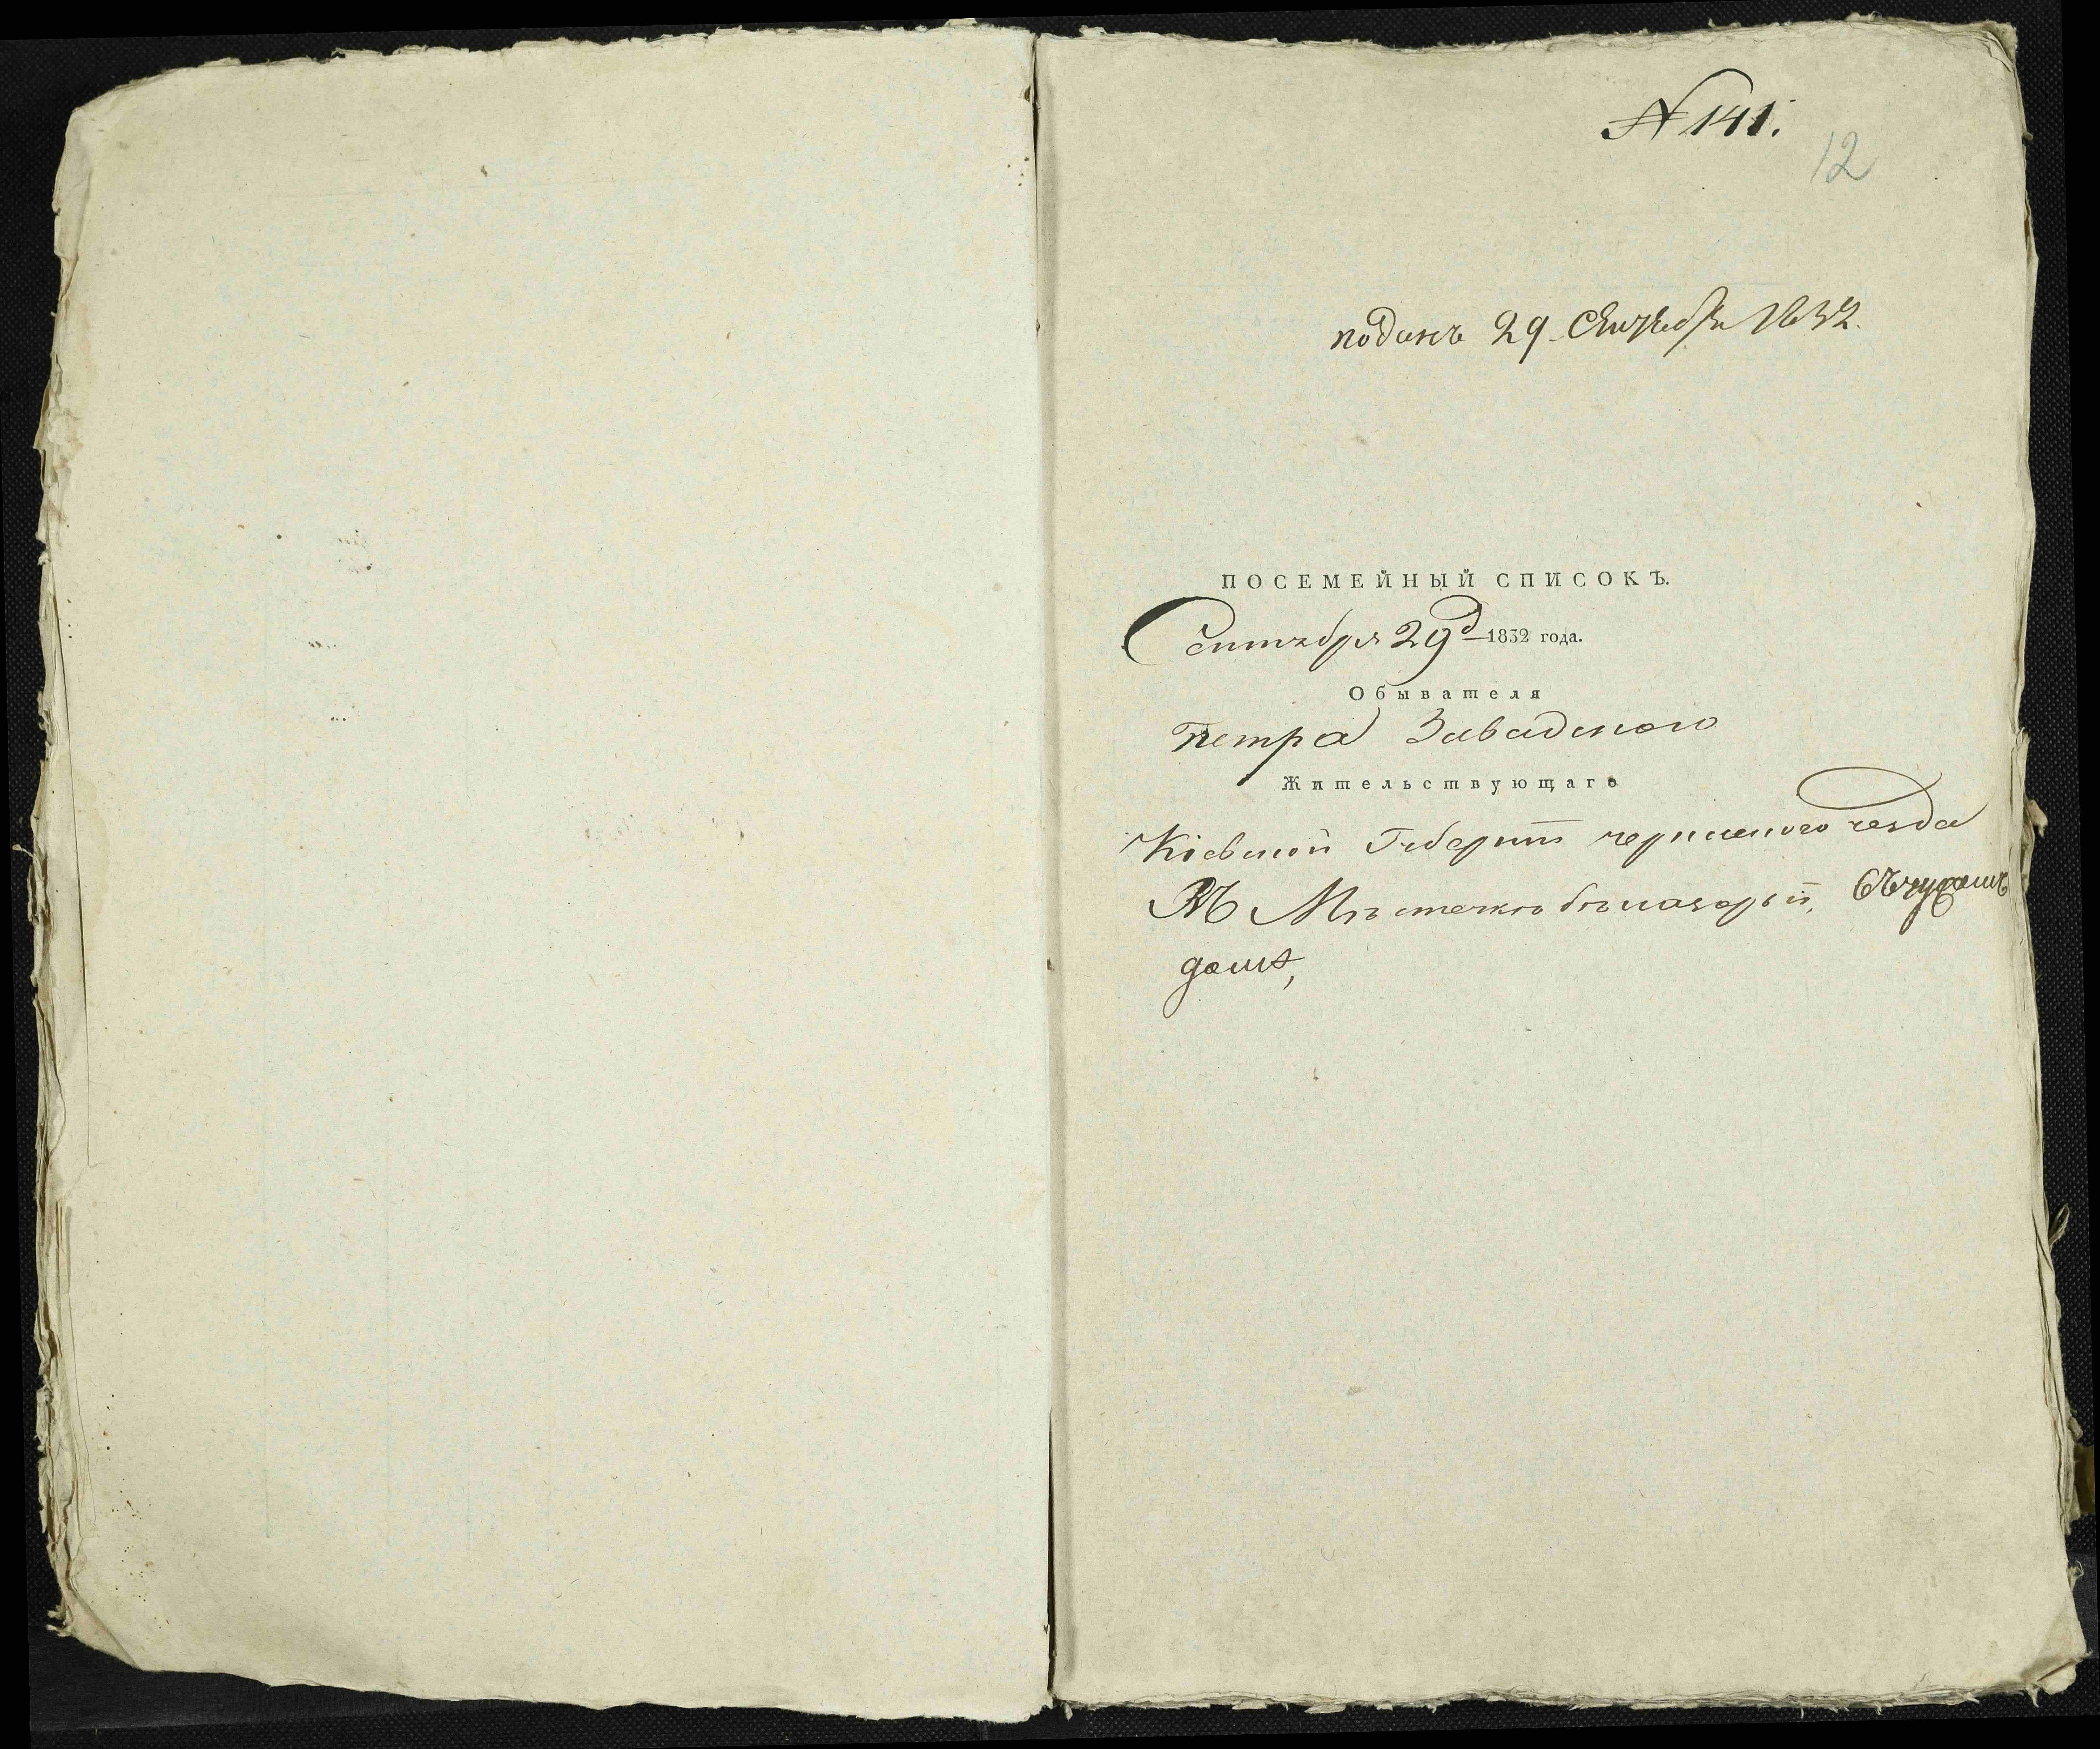 N 141.
12
поданъ 29 Сентября 1832.
ПОСЕМЕЙНЫЙ СПИСОКЪ.
Сентября 29д 1832 года.
Обывателя
петра Завадского
Жительствующаго
Кіевской Губерніи черкаского уезда
Въ Мѣстечкѣ бѣлазерьи, Въ чужомъ
доме,